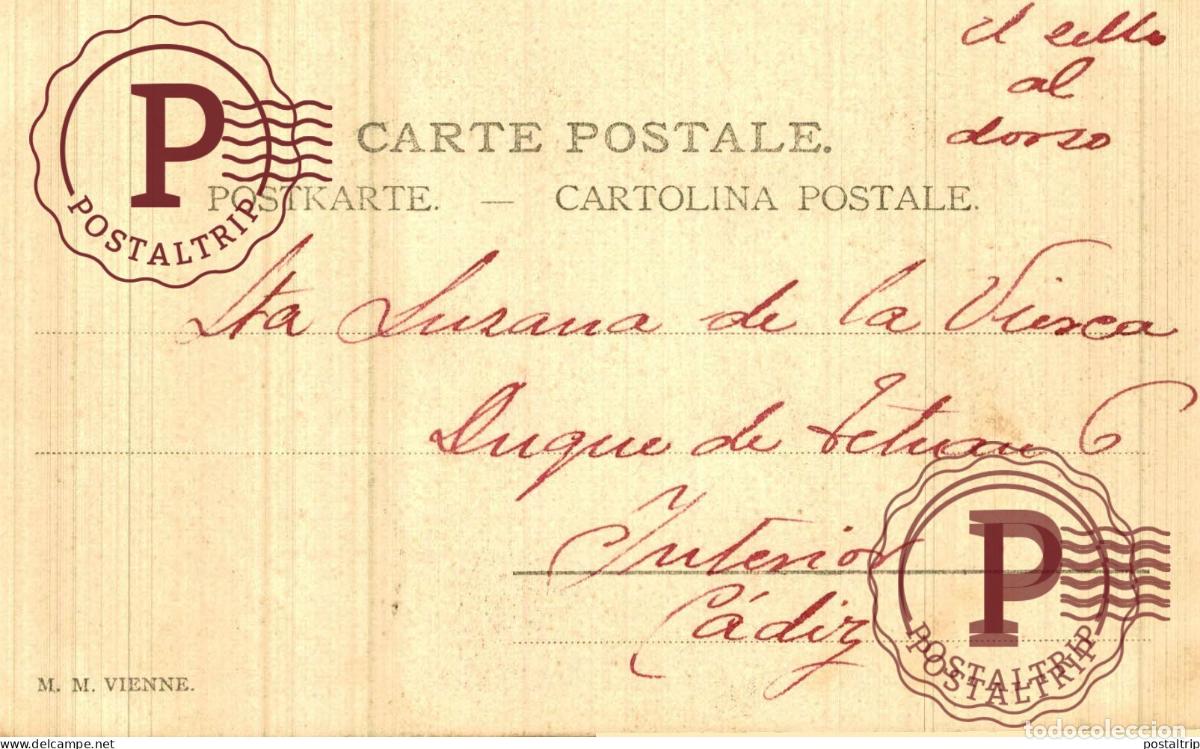 P
POSTALTRIP
el sello
al
dorso
CARTE POSTALE.
POSTKARTE. — CARTOLINA POSTALE.
Sta Susana de la Viesca
Duque de Tetuan 6
Interior
Cádiz
P
POSTALTRIP
POSTALTRIP
M. M. VIENNE.
todocoleccion
www.delcampe.net
postaltrip